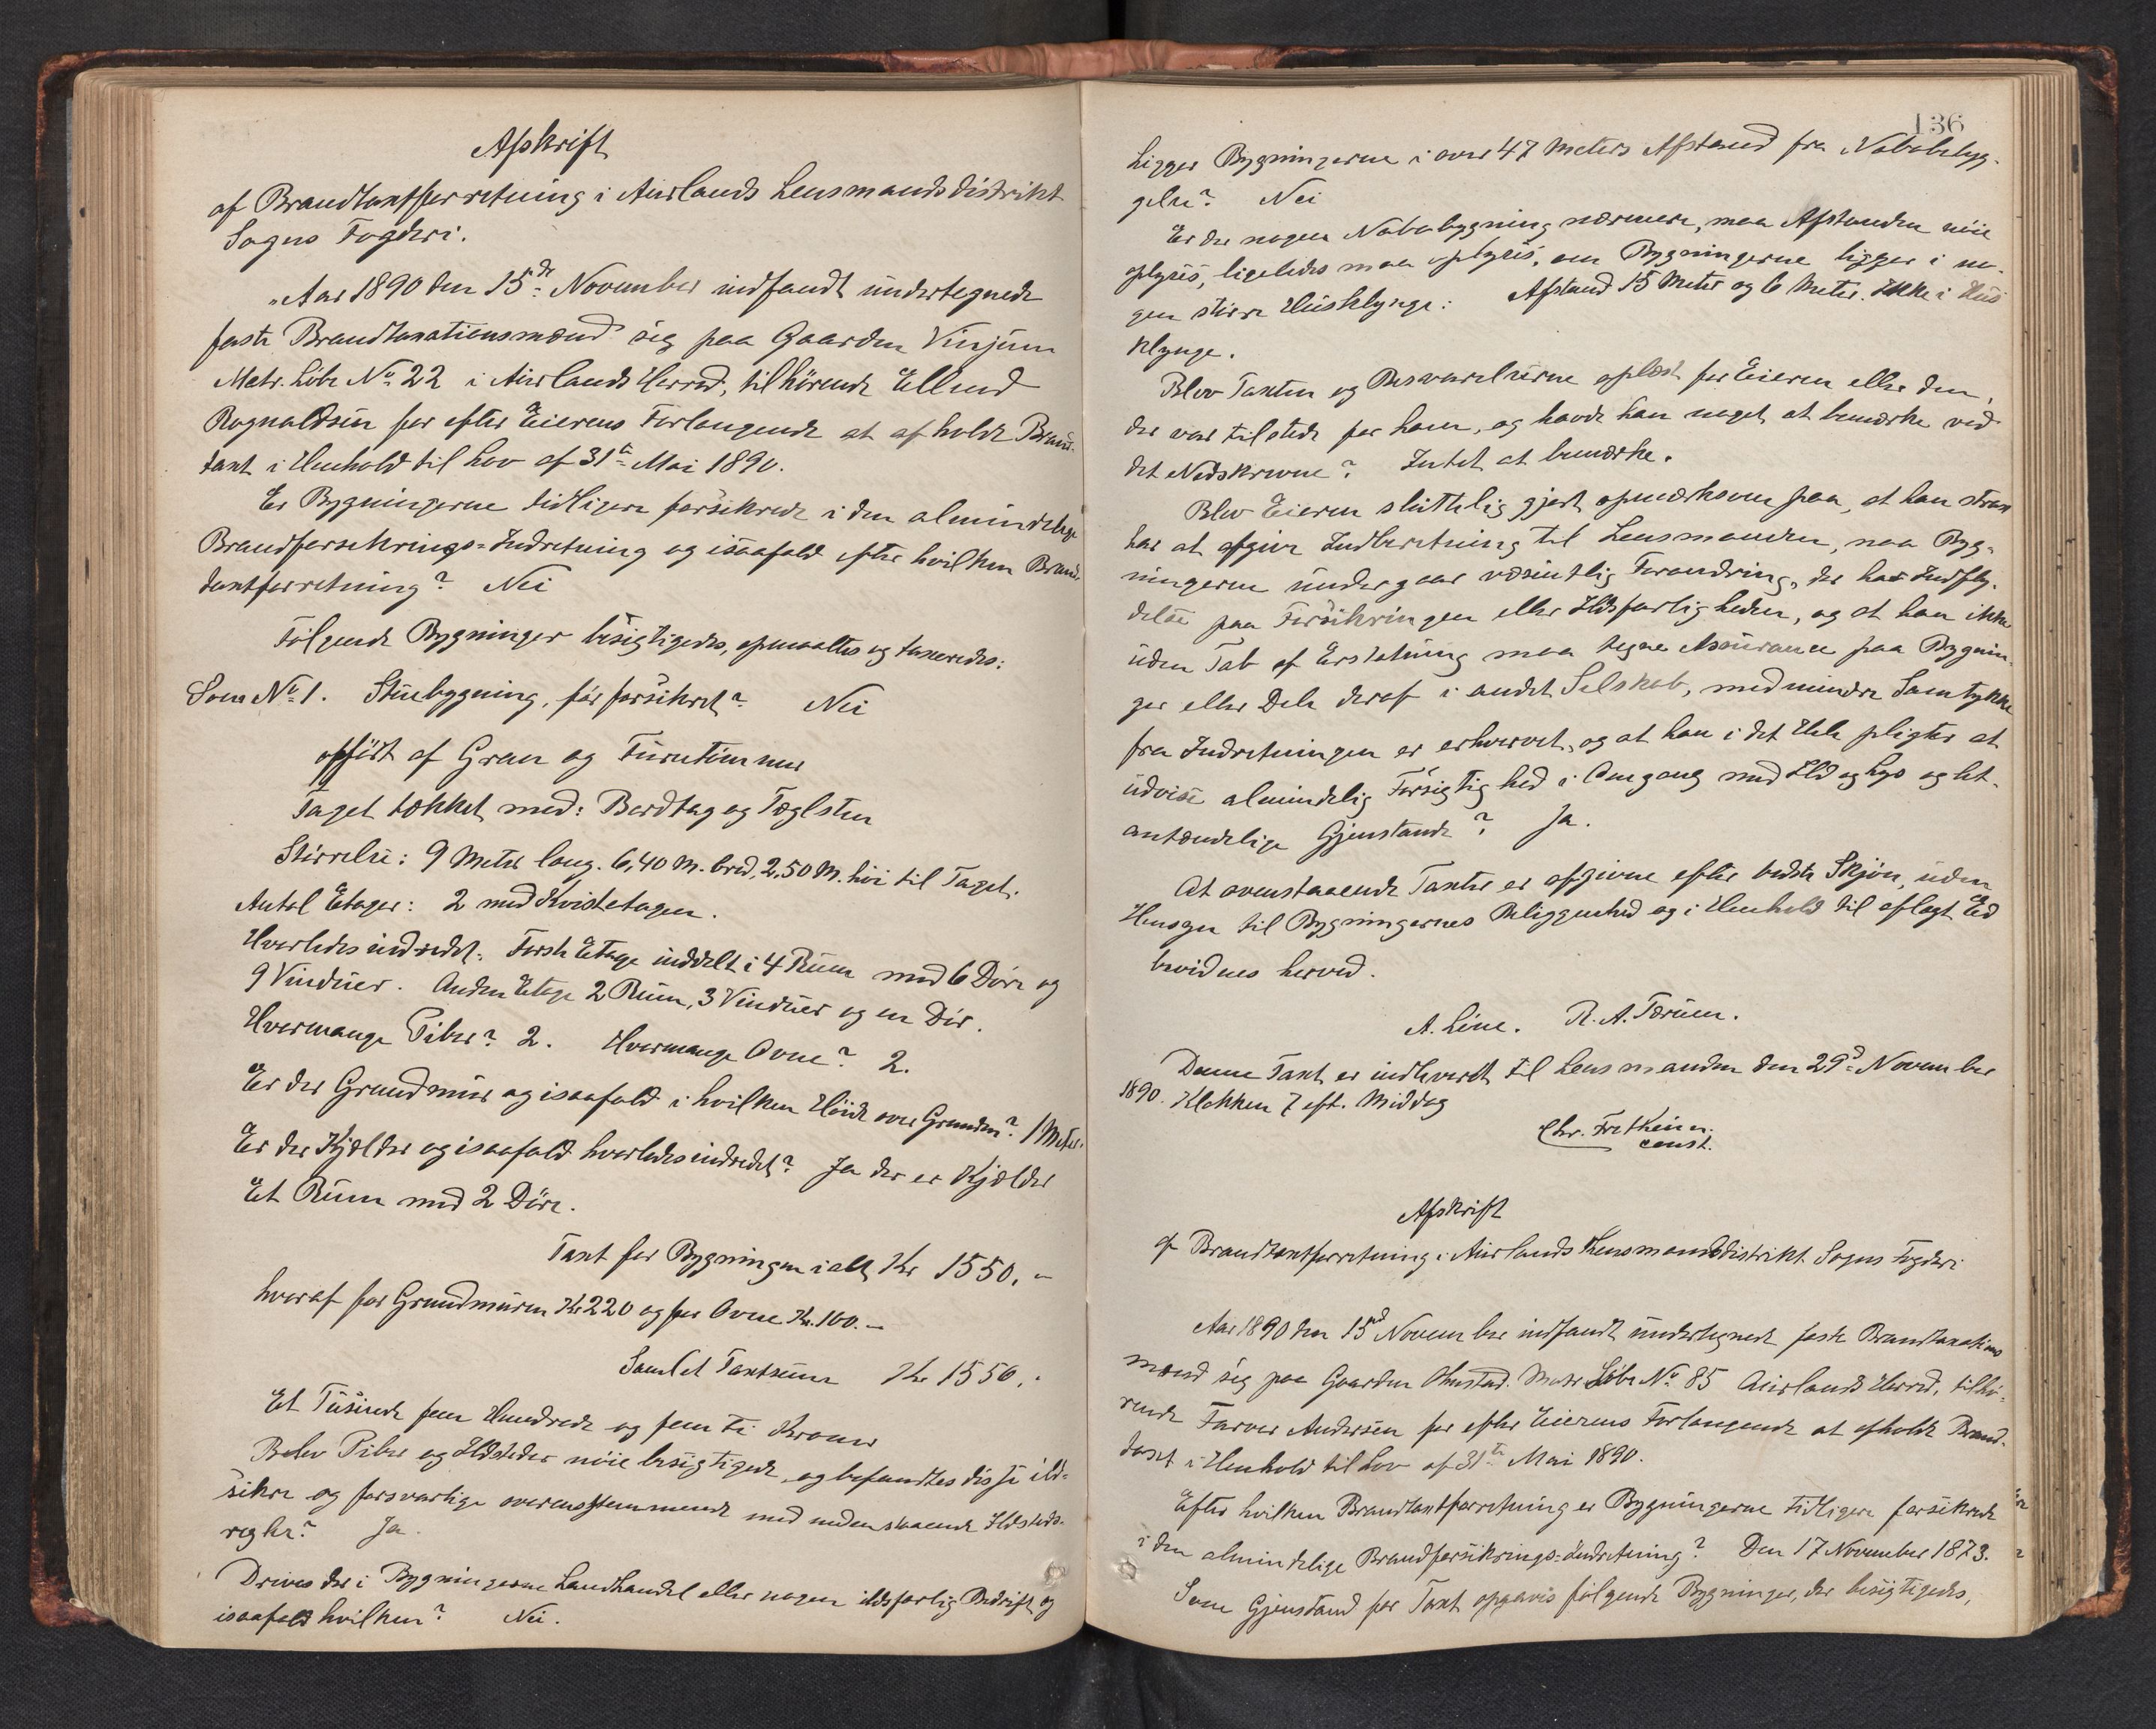 Afskrift
af Brandtaxtforretning i Aurlands Lensmandsdistrikt
Sogns Fogderi.
Aar 1890 den 15de November indfandt undertegnede
faste Brandtaxationsmænd sig paa Gaarden Vinjum
Matr. Löbe No 22 i Aurlands Herred, tilhörende Ellend
Rognaldsen for efter Eierens Forlangende at afholde Brand-
taxt i Henhold til Lov af 31te Mai 1890.
Er Bygningerne tidligere forsikrede i den almindelige
Brandforsikrings-Indretning og isaafald efter hvilken Brand-
taxtforretning? Nei
Følgende Bygninger besigtigedes, opmaaltes og taxeredes:
Som No 1. Stuebygning, før forsikret? Nei
opfört af Gran og Furutömmer
Taget tækket med: Bordtag og Tæglsten
Störrelse: 9 Meter lang. 6,40 M. bred, 2,50 M. höi til Taget.
Antal Etager: 2 med Kvistetagen.
Hvorledes indredet: Første Etage inddelt i 4 Rum med 6 Döre og
9 Vinduer. Anden Etage 2 Rum, 3 Vinduer og en Dör.
Hvormange Piber? 2. Hvormange Ovne? 2.
Er der Grundmur og isaafald i hvilken Höide over Grunden? 1 Meter.
Er der Kjælder og isaafald hvorledes indredet? Ja der er Kjælder
Et Rum med 2 Döre.
Taxt for Bygningen ialt Kr 1550.-
hvoraf for Grundmuren Kr 220 og for Ovne Kr. 100.-
Samlet Taxtsum Kr 1550.-
Et Tusinde fem Hundrede og femti Kroner
Blev Piber og Ildsteder nöie besigtigede, og befandtes disse ild-
sikre og forsvarlige overensstemmende med nedenstaaende Ildsteds-
regler? Ja.
Drives der i Bygningerne Landhandel eller nogen ildsfarlig Bedrift og
isaafald hvilken? Nei.
136
Ligger Bygningerne i over 47 Meters Afstand fra Nabobebyg-
gelse? Nei
Er der nogen Nabobygning nærmere, maa Afstanden nöie
oplyses, ligeledes maa oplyses, om Bygningerne ligger i no-
gen större Husklynge: Afstand 15 Meter og 6 Meter. Ikke i Hus
klynge.
Blev Taxten og Besvarelserne oplæst for Eieren eller den,
der var tilstede for ham, og havde han noget at bemærke ved
det Nedskrevne? Intet at bemærke.
Blev Eieren sluttelig gjort opmærksom paa, at han strax
har at afgive Indberetning til Lensmanden, naar Byg-
ningerne undergaar væsentlig Forandring, der har Indfly-
delse paa Forsikringen eller Ildsfarligheden, og at han ikke
uden Tab af Erstatning maa tegne Assurance paa Bygnin-
ger eller Dele deraf i andet Selskab, medmindre Samtykke
fra Indretningen er erhvervet, og at han i det Hele pligter at
udvise almindelig Forsigtighed i Omgang med Ild og Lys og let-
antændelige Gjenstande? Ja.
At ovenstaaende Taxter er afgivne efter bedste Skjön, uden
Hensyn til Bygningernes Beliggenhed og i Henhold til aflagt Ed
bevidnes herved.
A. Line. R. A. Tærum.
Denne Taxt er indleveret til Lensmanden den 29d November
1890. Klokken 7 eft. Middag
Chr. Fretheim
const.
Afskrift
af Brandtaxtforretning i Aurlands Lensmandsdistrikt Sogns Fogderi
Aar 1890 den 15d November indfandt undertegnede faste Brandtaxations
mænd sig paa Gaarden Ohnstad. Matr Löbe No 85 Aurlands Herred, tilhö-
rende Farver Andersen for efter Eierens Forlangende at afholde Brand-
taxt i Henhold til Lov af 31te Mai 1890.
Efter hvilken Brandtaxtforretning er Bygningerne tidligere forsikrede
i den almindelige Brandforsikrings-Indretning? Den 17 November 1873.
Som Gjenstand for Taxt opgaves følgende Bygninger, der besigtigedes,